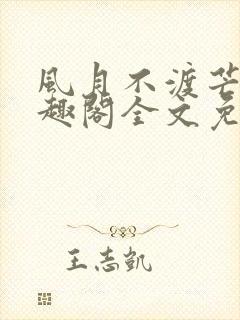 風月不渡芒
趣閣全文免
王志凱